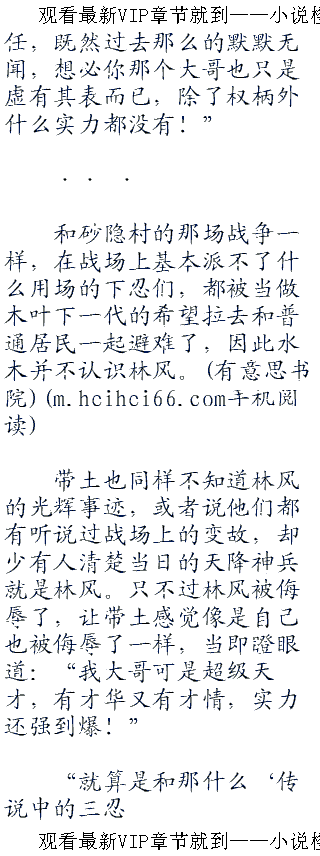 观看最新VIP章节就到——小说检
任，既然过去那么的默默无
闻，想必你那个大哥也只是
虚有其表而已，除了权柄外
什么实力都没有！”
．．．
和砂隐村的那场战争一
样，在战场上基本派不了什
么用场的下忍们，都被当做
木叶下一代的希望拉去和普
通居民一起避难了，因此水
木并不认识林风。(有意思书
院)(m.hcihci66.com手机阅
读)
带土也同样不知道林风
的光辉事迹，或者说他们都
有听说过战场上的变故，却
少有人清楚当日的天降神兵
就是林风。只不过林风被侮
辱了，让带土感觉像是自己
也被侮辱了一样，当即瞪眼
道：“我大哥可是超级天
才，有才华又有才情，实力
还强到爆！”
“就算是和那什么‘传
说中的三忍
观看最新VIP章节就到——小说检